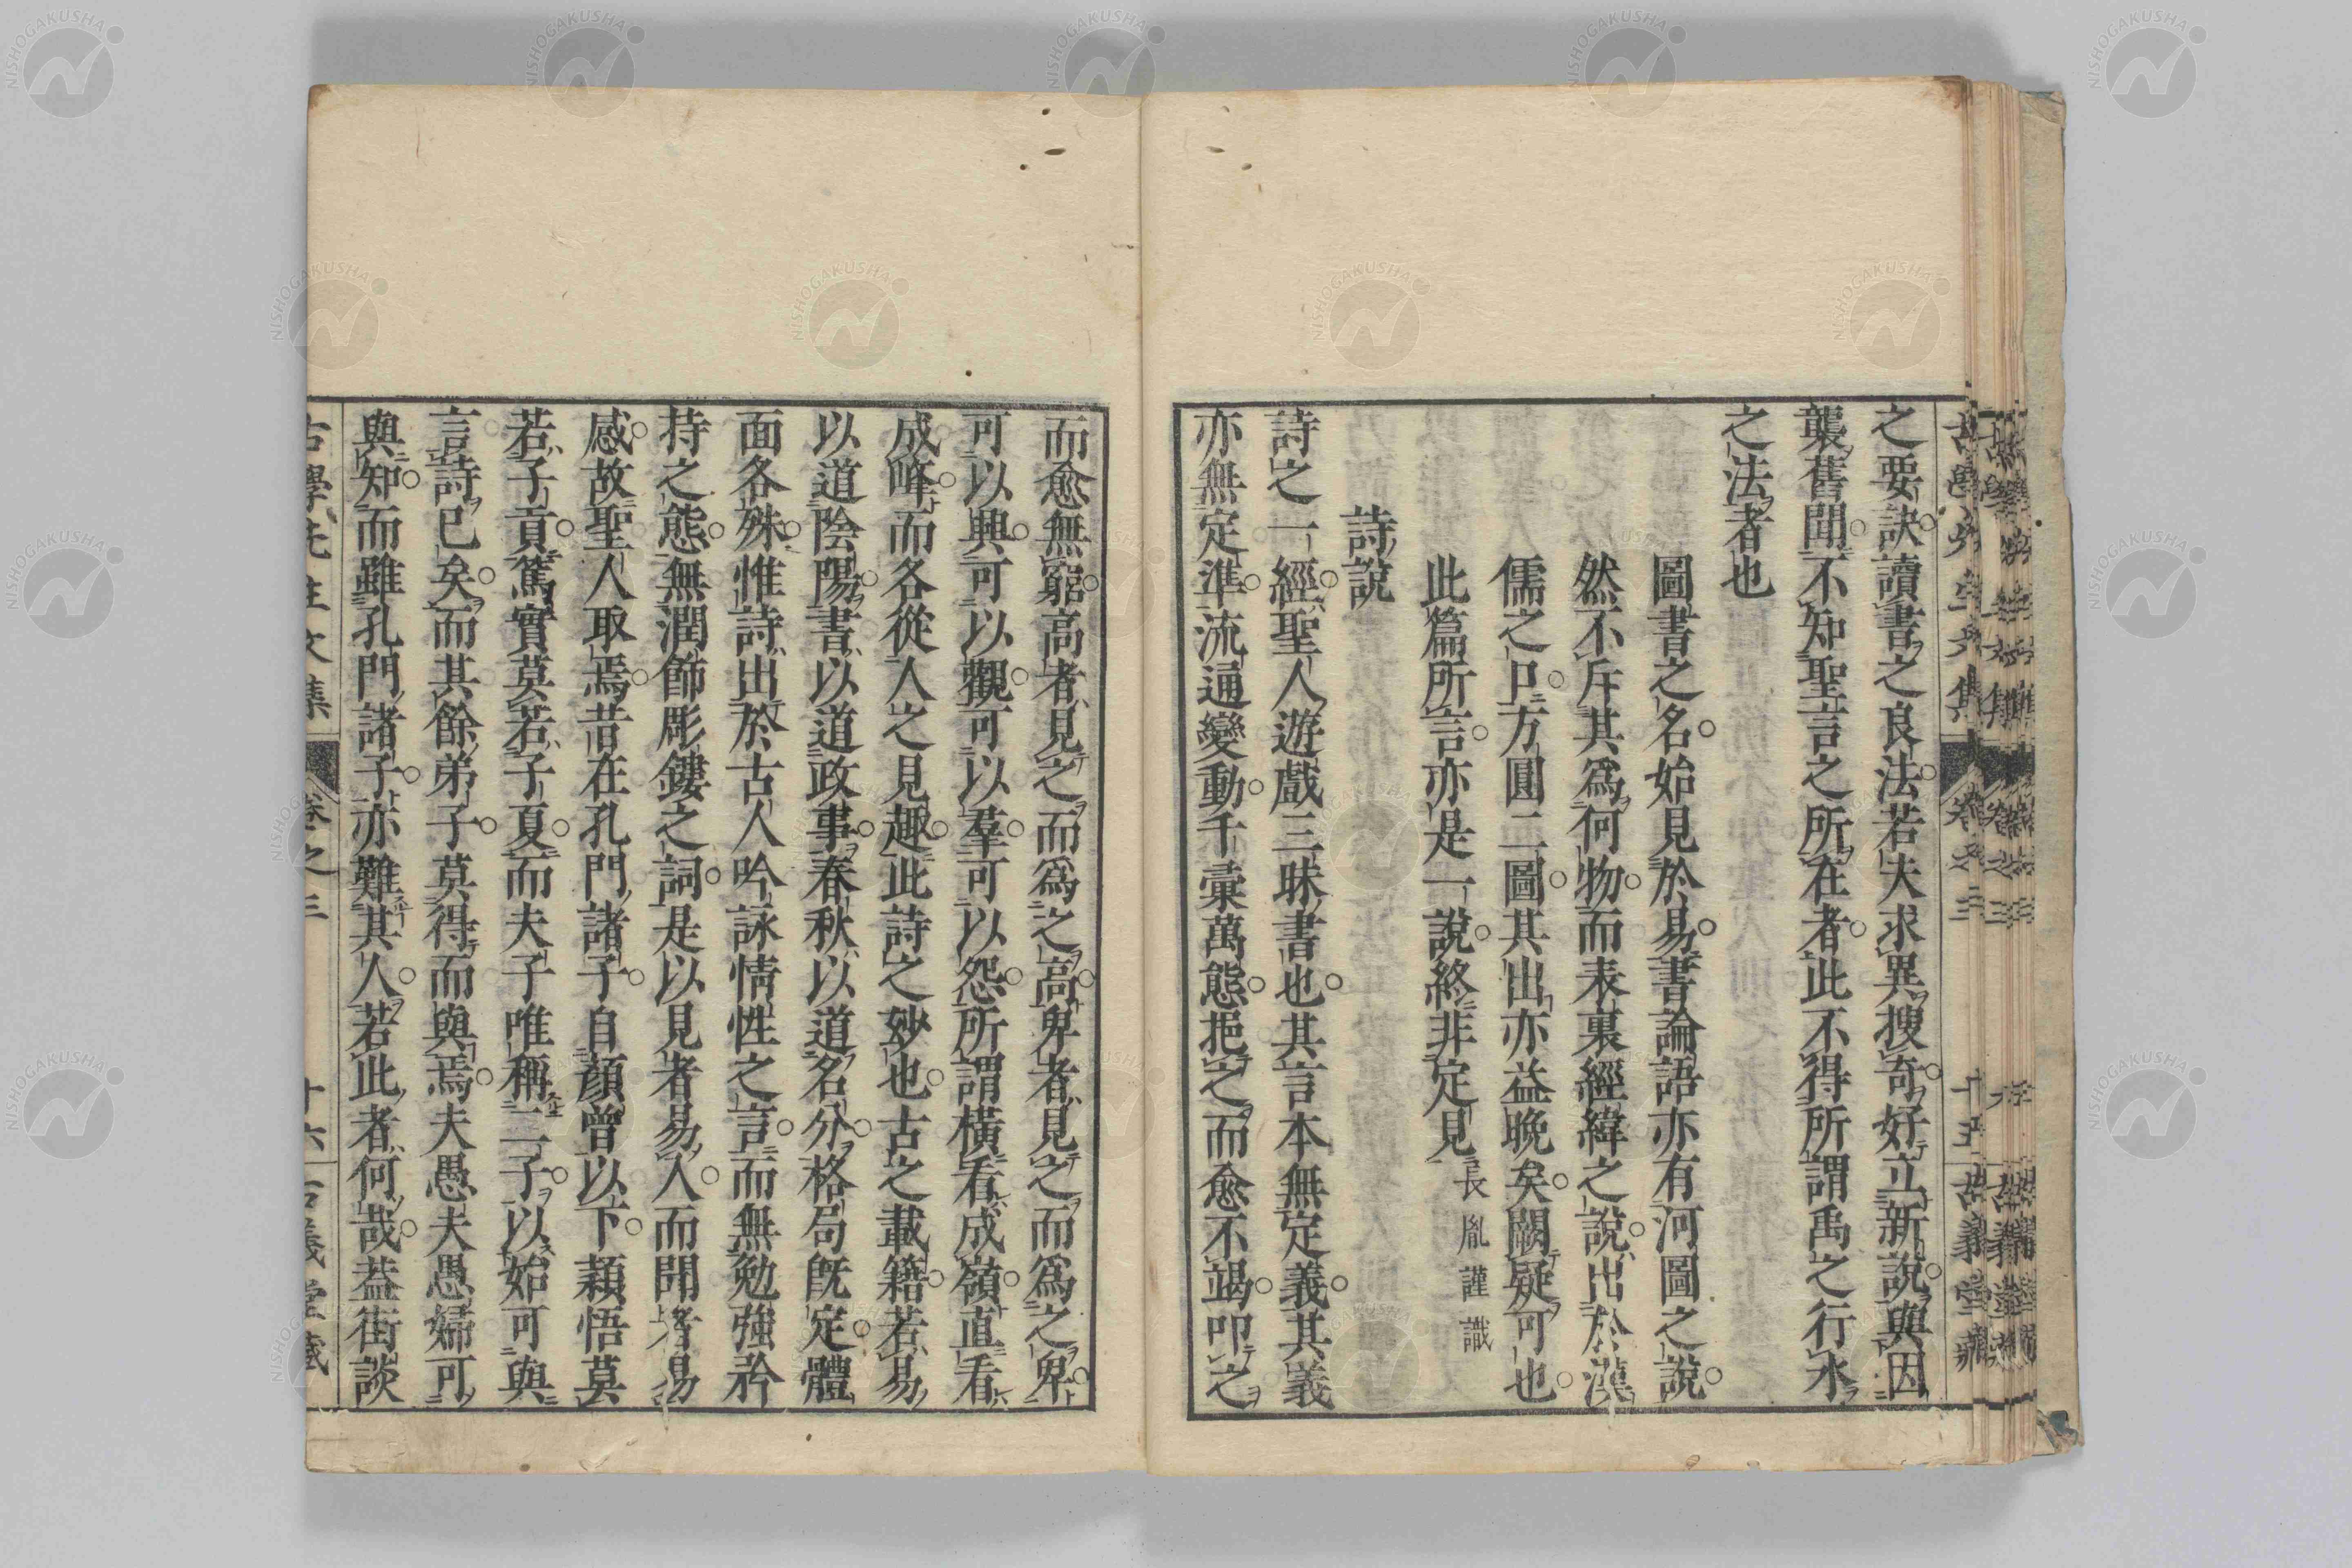 之要訣讀書之良法若夫求異搜奇好立新說與因
襲舊聞不知聖言之所在者此不得所謂禹之行水
之法者也
圖書之名始見於易書論語亦有河圖之說
然不斥其爲何物而表裏經緯之說出於漢
儒之口方圓二圖其出亦益晩矣闕疑可也
此篇所言亦是一說終非定見長胤謹識
詩說
詩之一經聖人遊戲三昧書也其言本無定義其義
亦無定準流通變動千彙萬態挹之而愈不竭叩之
而愈無窮高者見之而爲之高卑者見之而爲之卑
可以興可以觀可以羣可以怨所謂橫看成嶺直看
成峰而各從人之見趣此詩之妙也古之載籍若易
以道陰陽書以道政事春秋以道名分格局旣定體
面各殊惟詩出於古人吟詠情性之言而無勉強矜
持之態無潤飾彫鏤之詞是以見者易入而聞者易
感故聖人取焉昔在孔門諸子自顏曾以下穎悟莫
若子貢篤實莫若子夏而夫子唯稱二子以始可與
言詩已矣而其餘弟子莫得而與焉夫愚夫愚婦可
與知而雖孔門諸子亦難其人若此者何哉蓋街談
古學先生文集 卷之三 十六 古義堂藏
NISHOGAKUSHA